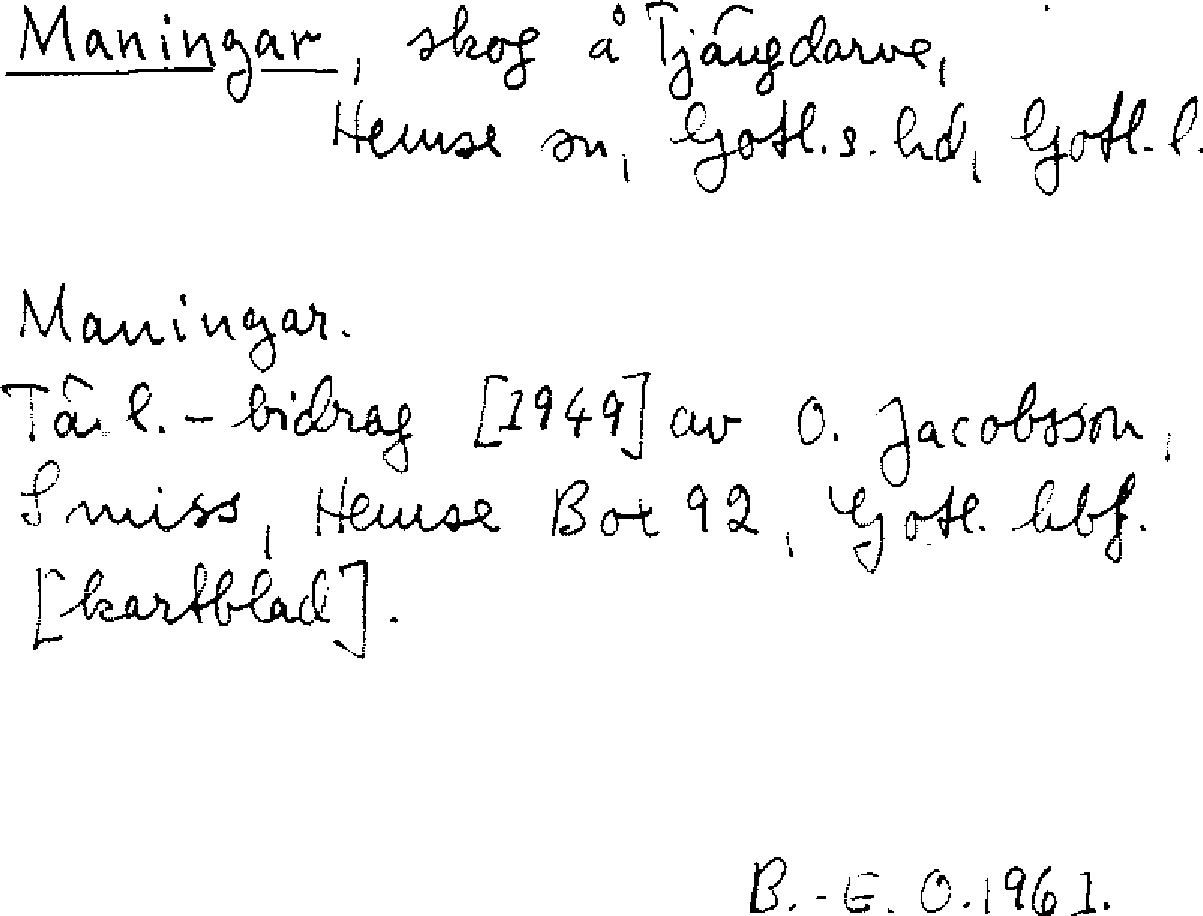 Maningar, skog å Tjängdarve,
Hemse sn, Gotl. s. hd, Gotl. l.
Maningar.
Täil.-bidrag [1949] av O. Jacobsson,
Smiss, Hemse Box 92, Gotl. hbf.
[kartblad].
B.-E. O. 1961.